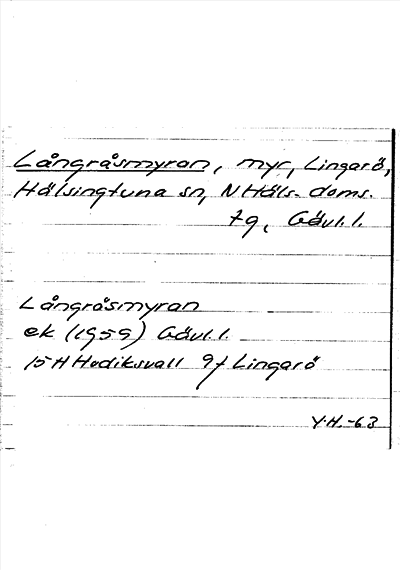 Långråsmyran, myr, Lingarö,
Hälsingtuna sn, N Häls. doms.
tg, Gävl. l.
Långråsmyran
ek (1959) Gävl. l.
15H Hudiksvall 9f Lingarö
Y.H.-63